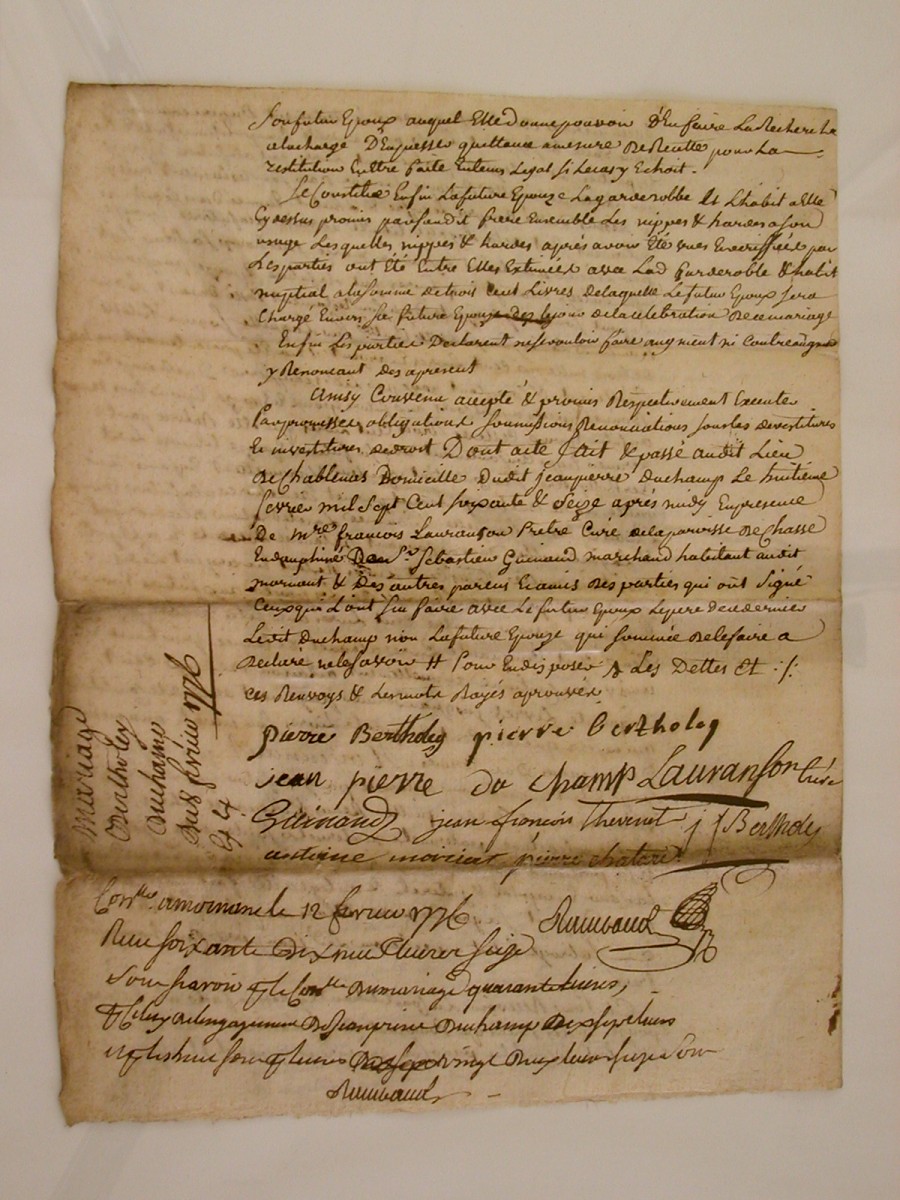 Son futur Epoux auquel Elle donne pouvoir d'En faire La Recherche
a la charge D'En passer quittance a mesure De Recette pour La
restitution En Etre faite En tems Legal si Le cas y Echoit.
Se Constitue Enfin La future Epouze La garderobbe Et L'habit a Elle
Cy dessus promis par sondit frere Ensemble Les nippes & hardes a son
usage Les quelles nippes & hardes aprés avoir Eté vues En veriffiées par
Les parties ont Eté Entre Elles Estimées avec Lad garderobbe & habit
nuptial a la somme de trois cent Livres de laquelle Le futur Epoux sera
Chargé Envers Sa future Epouze des Le jour de la celebration De ce mariage
Enfin Les parties Declarent ne se vouloir faire augment ni Contreaugment
y Renoncant Des apresent
Ainsy Convenu accepté & promis Respectivement Executer
Par promesses obligations soumissions Renonciations sous les devestitures
Et investitures de droit Dont acte fait & passé audit Lieu
De Chablenas Domicille Dudit jean pierre Duchamp Le huitieme
fevrier mil Sept Cent soixante & Seize aprés midy En presence
De mre françois Lauranson Prêtre Curé de la paroisse De Chasse
En dauphiné De Sr Sébastien Guinand marchand habitant audit
mornant & Des autres parens Et amis Des parties qui ont signé
Ceux qui L'ont sçu faire avec Le futur Epoux Le pere De ce dernier
Ledit Duchamp non La future Epouze qui sommée De le faire a
Declaré ne le savoir # Pour En disposer & Les Dettes Et ./.
ces Renvoys & Les mots Rayés aprouvés
pierre Bertholey pierre bertholey
jean pierre du champ Lauranson Curé
Guinand jean françois Thevenet j f Bertholey
antoine pierre chatard
Mariage
Bertholey
Duchamp
Du 8 février 1776
Conlle. a mornant le 12 fevrier 1776
Reçu soixante Dix neuf Livres seize
sous savoir Le Conlle Du mariage quarante Livres,
& Celuy De l'engagement De Jean pierre Duchamp Dix sept Livres
vingt Deux Livres seize Sous